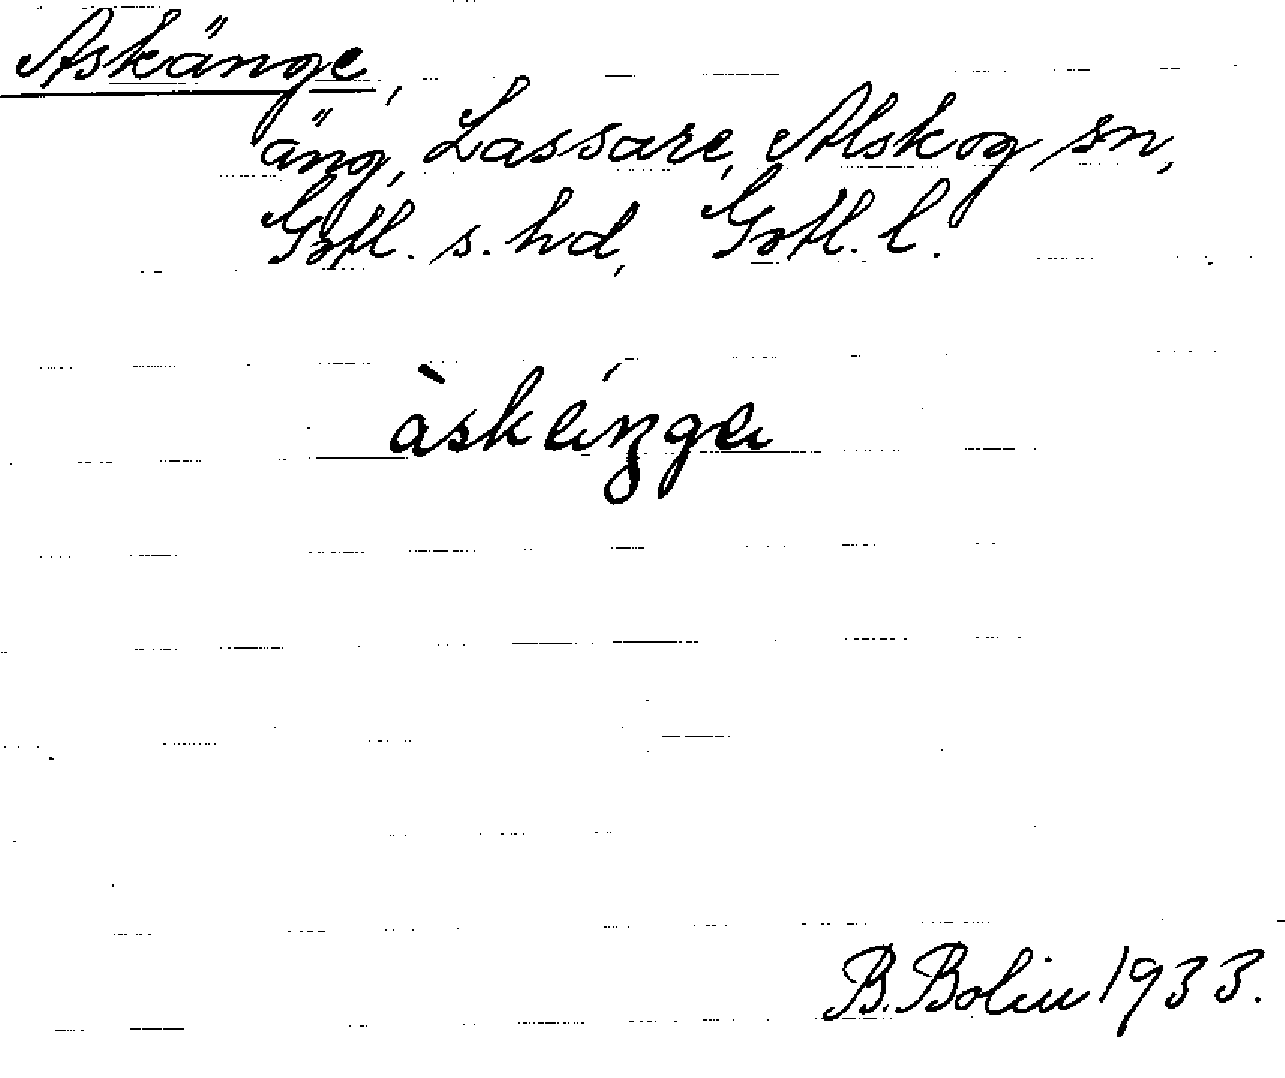 Askänge,
äng, Lassare, Alskog sn,
Gotl. s. hd, Gotl. l.
B. Bolin 1933.